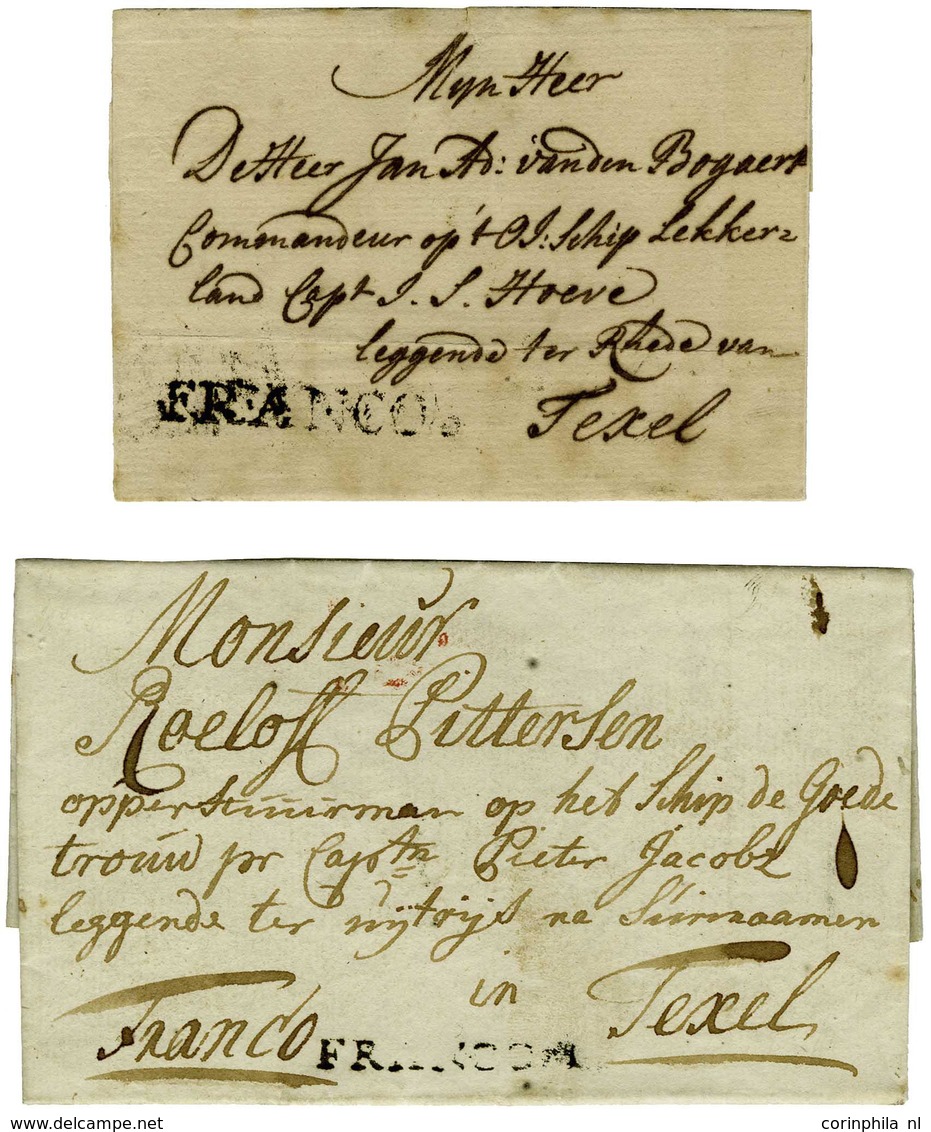 Myn Heer
De Heer Jan Ad: vanden Bogaert
Commandeur op't OJ: Schip Lekker=
land Capt J. S. Hoeve
leggende ter Rhede van
FRANCO
Texel
Monsieur
Roeloff Pittersen
opperstuurman op het Schip de Goede
trouw pr Captn Pieter Jacobz
leggende ter uijtrijs na Surinaamen
in
Franco FRANCO Texel
corinphila nl